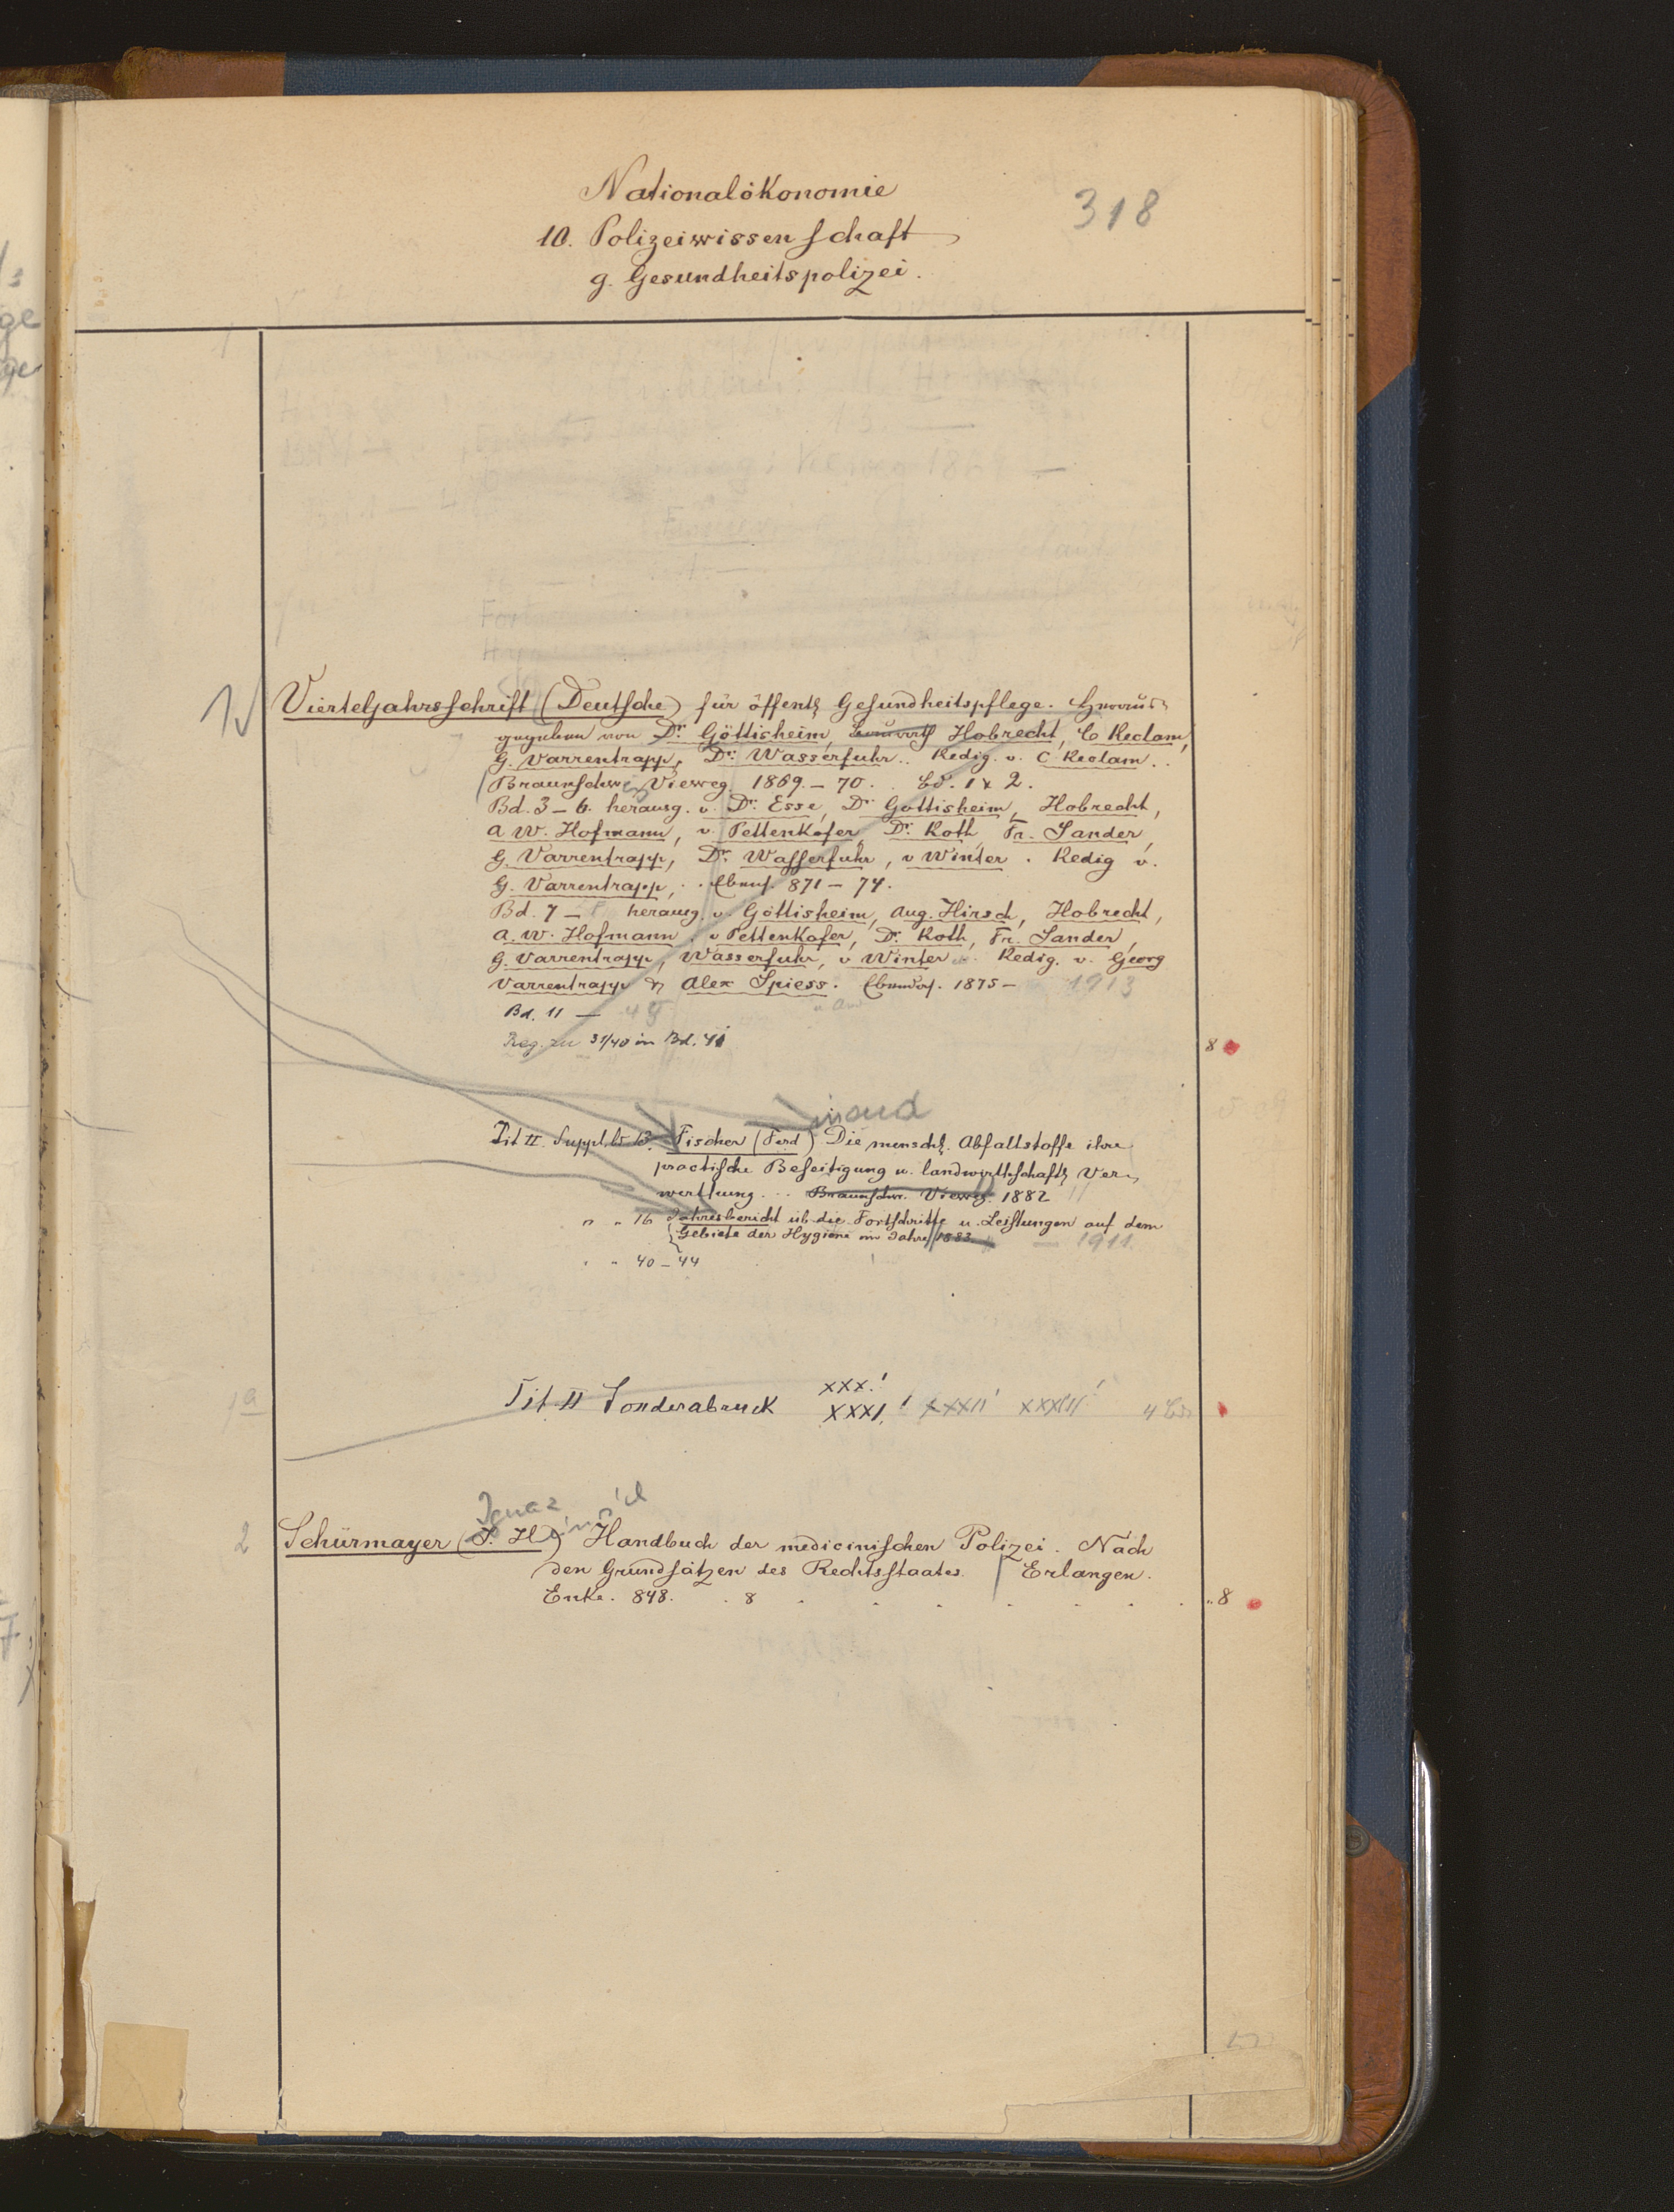 Nationalökonomie
318
10. Polizeiwissenschaft
g. Gesundheitspolizei.
1
Vierteljahrsschrift (Deutsche) für öffentl Gesundheitspflege. Heraus-
gegeben von Dr. Göttisheim, Hobrecht, C Reclam,
G. Varrentrapp, Dr. Wasserfuhr.. Redig. v. C Reclam..
Braunschweig Vieweg. 1869.-70. Bd. 1 & 2.
Bd. 3-6. herausg. v. Dr. Esse, Dr Göttisheim, Hobrecht,
A W. Hofmann, v. Pettenkofer, Dr. Roth, Fr. Sander,
G. Varrentrapp, Dr. Wasserfuhr, v Winter. Redig v.
G. Varrentrapp,. Ebend. 871-74.
Bd. 7- herausg. v. Göttisheim, Aug. Hirsch, Hobrecht,
A. W. Hofmann, v Pettenkofer, Dr. Roth, Fr. Sander,
G. Varrentrapp, Wasserfuhr, v Winter. Redig. v. Georg
Varrentrapp & Alex Spiess. Ebendas. 1875- 1913
Bd. 11 - 45
Reg. zu 31/40 in Bd. 41
8
inand
Tit II. Suppl. Fischer (Ferd) Die menschl. Abfallstoffe ihre
practische Beseitigung u. landwirthschaftl Ver-
werthung... Braunschw. Vieweg. 1882
" " 16 Jahresbericht üb die Fortschritte u. Leistungen auf dem
Gebiete der Hygiene im Jahre 1883. - 1911.
" " 40-44
1a
Tit II Sonderabruck XXX.!
XXXI.! XXXII! XXXIII! 4 Bde
Ignaz
2
Schürmayer (I. H) Handbuch der medicinischen Polizei. Nach
den Grundsätzen des Rechtsstaates. Erlangen.
Enke. 848. . 8 . . . . . . . "8